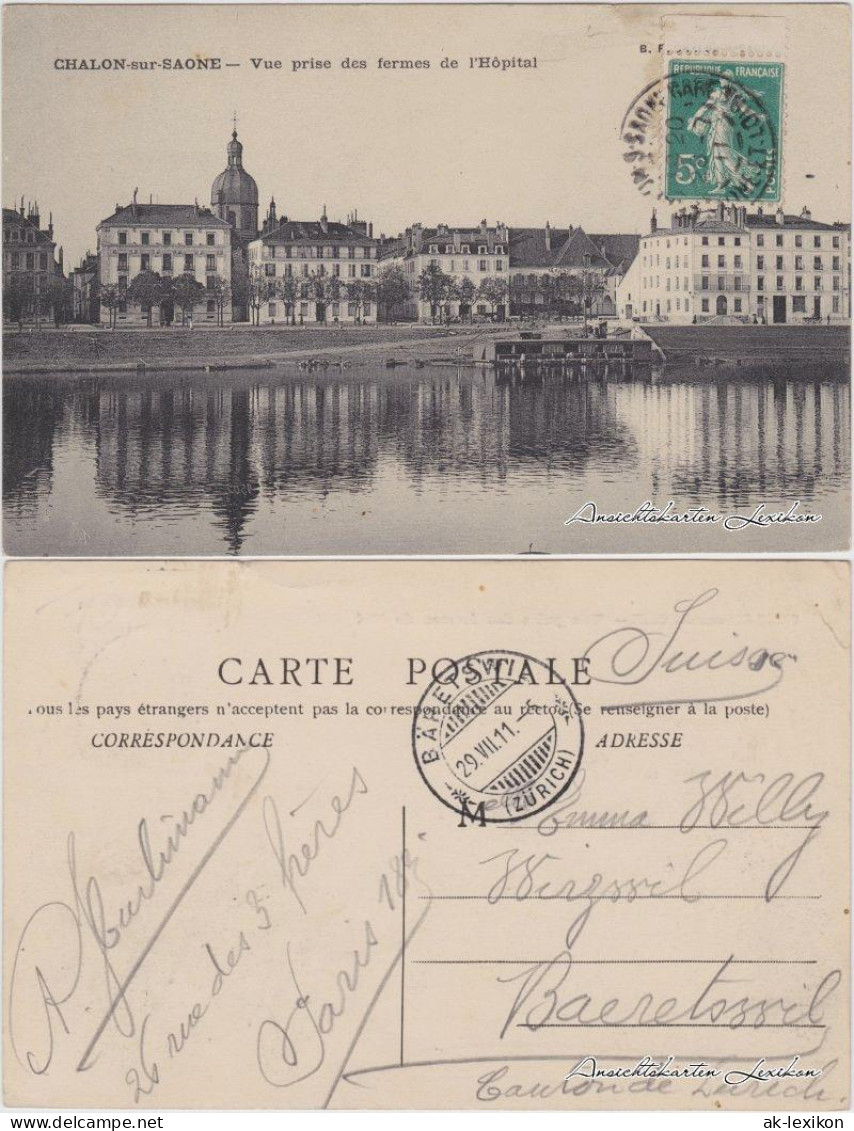 CHALON-sur-SAONE — Vue prise des fermes de l'Hôpital
B. F.
REPUBLIQUE FRANÇAISE
5c
POSTES
Ansichtskarten Lexikon
Suisse
CARTE POSTALE
Tous les pays étrangers n'acceptent pas la correspondance au recto (Se renseigner à la poste)
CORRESPONDANCE
ADRESSE
BÄRETSWIL
29.VII.11.
(ZÜRICH)
M Emma Willy
Wirzwil
Baeretswil
Canton de Zürich.
A.
26 rue des 3 frères
Paris 18e
Ansichtskarten Lexikon
ak-lexikon